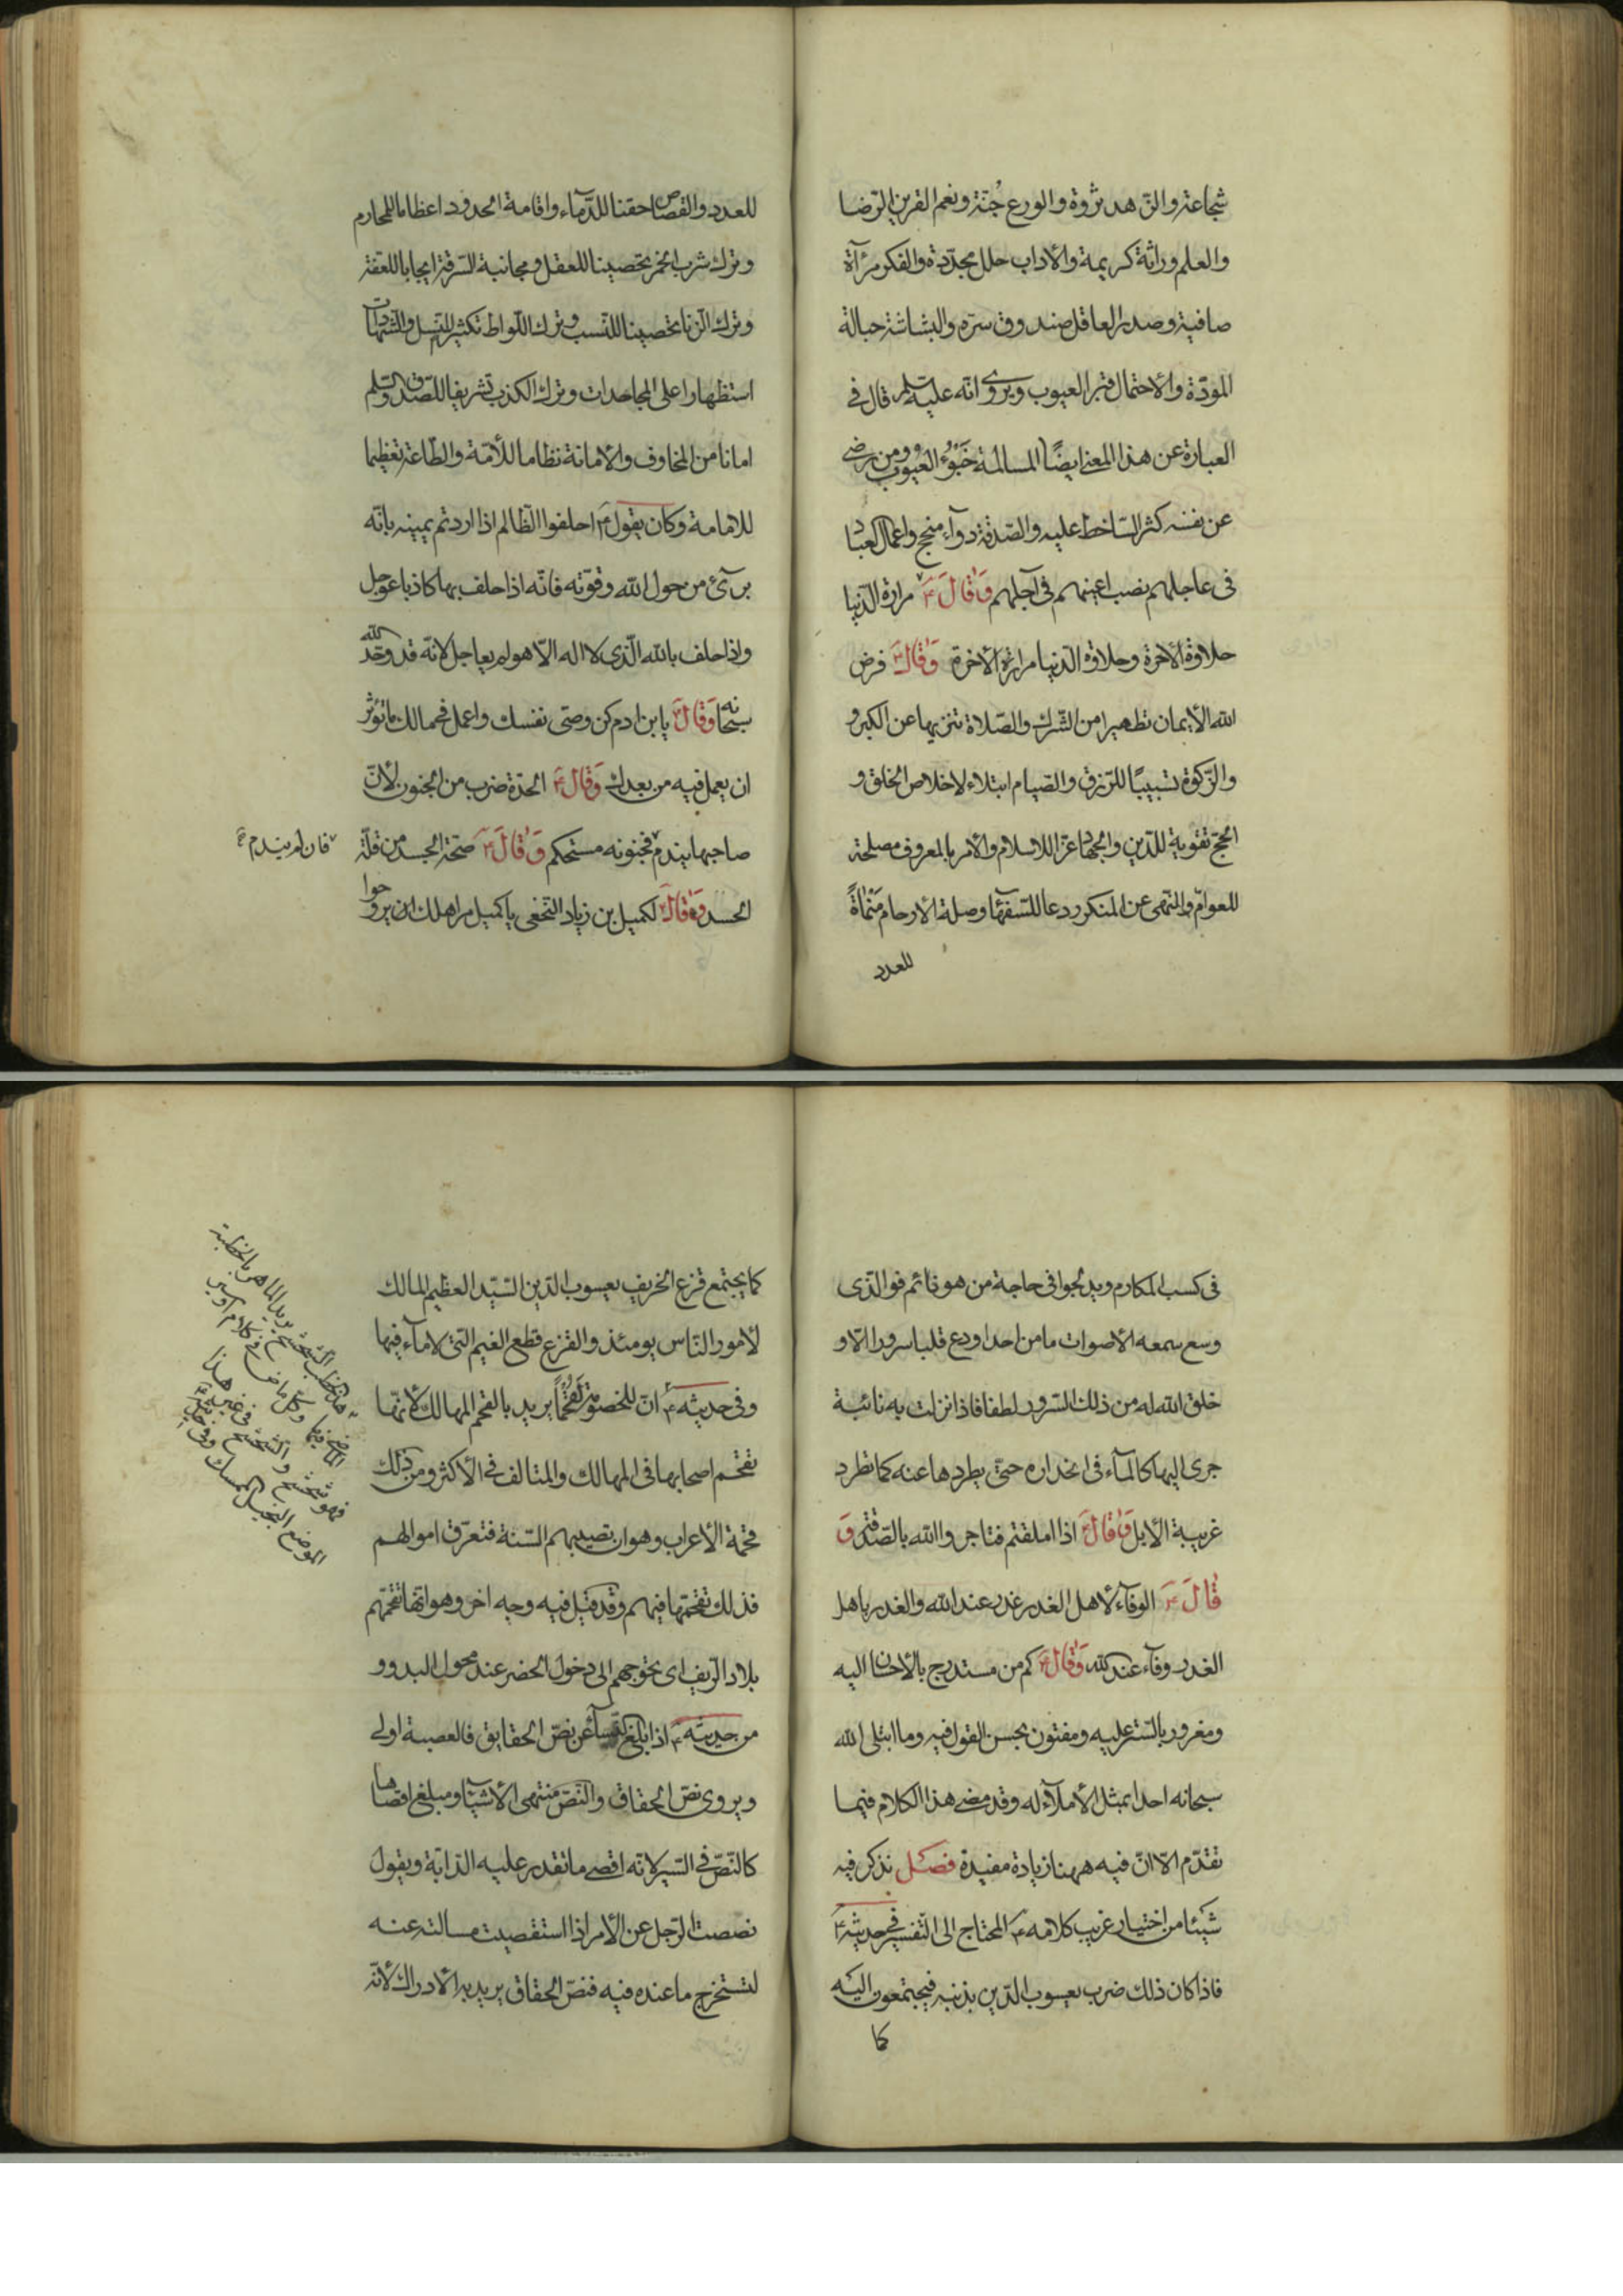 شجاعة والزّهد ثروة والورع جُنّة ونعم القرين الرّضا
والعلم وراثة كريمة والاداب حلل مجدّدة والفكر مرآة
صافية وصدر العاقل صندوق سرّه والبشاشة حبالة
المودّة والاحتمال قبر العيوب ويروى انّه عليه السلم قال فى
العبارة عن هذا المعنى ايضًا المسالمة خَبْؤُ العيوب ومن رضى
عن نفسه كثر السّاخط عليه والصّدقة دوآء منجح واعمال العباد
فى عاجلهم نصب اعينهم فى آجلهم وَقَالَ ع مرارة الدّنيا
حلاوة الاخرة وحلاوة الدّنيا مرارة الاخرة وَقَالَ ع فرض
الله الايمان تطهيرا من الشّرك والصّلاة تنزيها عن الكبر و
والزّكوة تسبيبًا للرّزق والصّيام ابتلاء لاخلاص الخلق و
الحجّ تقوية للدّين والجهاد عزّا للاسلام والامر بالمعروف مصلحة
للعوامّ والنّهى عن المنكر ردعا للسّفهآء وصلة الارحام مَنْمَاةً
للعدد
للعدد والقصاص حقنا للدّمآء واقامة الحدود اعظاما للمحارم
وترك شرب الخمر تحصينا للعقل ومجانبة السّرقة ايجابا للعفّة
وترك الزّنا تحصينا للنّسب وترك اللّواط تكثيرا للنّسل والشّهادات
استظهارا على المجاحدات وترك الكذب تشريفا للصّدق والسّلم
امانا من المخاوف والامانة نظاما للأمّة والطّاعة تعظيما
للامامة وكان يقول ع احلفوا الظّالم اذا اردتم يمينه بانّه
برىٓء من حول الله وقوّته فانّه اذا حلف بها كاذبا عوجل
واذا حلف بالله الّذى لا اله الّا هو لم يعاجل لانّه قد وحّد الله
سبحانه وَقَالَ ع يا بن ادم كن وصىّ نفسك واعمل فى مالك ما تؤثر
ان يعمل فيه من بعدك وَقَالَ ع الحدّة ضرب من الجنون لأنّ
صاحبها يندم فجنونه مستحكم وَقَالَ ع صحّة الجسد من قلّة
فان لم يندم
الحسد وَقَالَ ع لكميل بن زياد النّخعى يا كميل مر اهلك ان يروحوا
فى كسب المكارم ويدلجوا فى حاجة من هو نائم فو الّذى
وسع سمعه الاصوات ما من احد اودع قلبا سرورا الّا و
خلق الله له من ذلك السّرور لطفا فاذا نزلت به نائبة
جرى اليها كالمآء فى انحداره حتّى يطردها عنه كما تطرد
غريبة الابل وَقَالَ ع اذا املقتم فتاجروا الله بالصّدقة وَ
قَالَ ع الوفآء لاهل الغدر غدر عند الله والغدر باهل
الغدر وفآء عند الله وَقَالَ ع كم من مستدرج بالاحسان اليه
ومغرور بالسّتر عليه ومفتون بحسن القول فيه وما ابتلى الله
سبحانه احدا بمثل الأملآء له وقد مضى هذا الكلام فيما
تقدّم الّا انّ فيه ههنا زيادة مفيدة فصل نذكر فيه
شيئا من اختيار غريب كلامه ع المحتاج الى التّفسير فى حديثه ع
فاذا كان ذلك ضرب يعسوب الدّين بذنبه فيجتمعون اليه
كما
كما يجتمع قزع الخريف يعسوب الدّين السّيّد العظيم المالك
لأمور النّاس يومئذ والقزع قطع الغيم الّتى لا مآء فيها
وفى حديثه ع انّ للخصومة قُحَمًا يريد بالقحم المهالك لأنّها
تقحم اصحابها فى المهالك والمتالف فى الأكثر ومن ذلك
قحمة الأعراب وهو ان تصيبهم السّنة فتعرّق اموالهم
فذلك تقحّمها فيهم وقد قيل فيه وجه اخر وهو انّها تقحّمهم
بلاد الرّيف اى تحوجهم الى دخول الحضر عند محول البدو و
من حديثه ع اذا بلغ النّسآء نصّ الحقايق فالعصبة اولى
ويروى نصّ الحقاق والنّصّ منتهى الأشيآء ومبلغ اقصاها
كالنّصّ فى السّير لانّه اقصى ما تقدر عليه الدّابّة ويقول
نصصت الرّجل عن الأمر اذا استقصيت مسالته عنه
لتستخرج ما عنده فيه فنصّ الحقاق يريد به الادراك لأنّه
هذا الخطيب الشّحشح يريد الماهر بالخطبة
الماضى فيها وكلّ ماض فى كلام او سير
فهو شحشح والشّحشح فى غير هذا
الموضع البخيل الممسك وفى حديثه ع